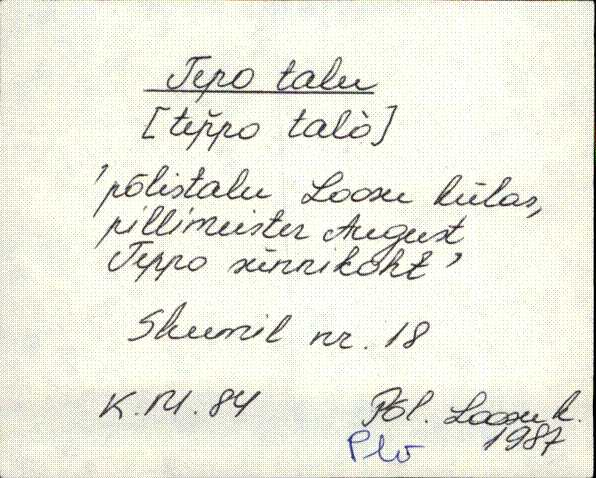 Tepo talu
[tep̆po talò]
'põlistalu Loosu külas,
pillimeister August
Teppo sünnikoht'
Skeemil nr. 18
K.M. 84
Põl. Loosu k.
Plv 1987